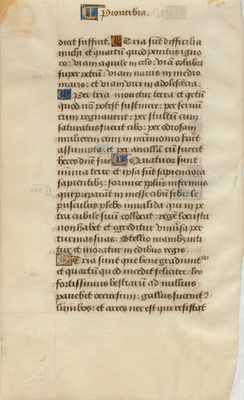 Proverbia.
dicit sufficit. Tria sūt difficilia
michi et quartū quod penitus igno
ro: viam aquile in celo: viā colubri
super petrā: viam nauis in medio
maris: et viam viri in adolescētia.
Per tria mouetur terra et quartū
quod nō potest sustinere: per seruū
cum regnauerit: per stultū cum
saturatus fuerit cibo: per odiosam
mulierem cum in m̄rimonio fuerit
assumpta: et per ancillā cū fuerit
heres dn̄e sue. Quatuor sunt
minima terre et ipsa sūt sapienciora
sapientibꝫ: formice ppl'us infirmus
que preparāt in messe cibū sibi: le
pusculus plebs inualida qui in pe
tra cubile suū collocat: regē locusta
non habet et egreditur vniūsa per
turmas suas: stellio manibꝫ niti
tur et moratur in edibus regis.
Tria sunt que bene gradiunt᷑
et quartū quod incedit feliciter: leo
fortissimus bestiarū ad nullius
pauebit occursum: gallus succinct᷒
lumbos: et aries nec est qui resistat